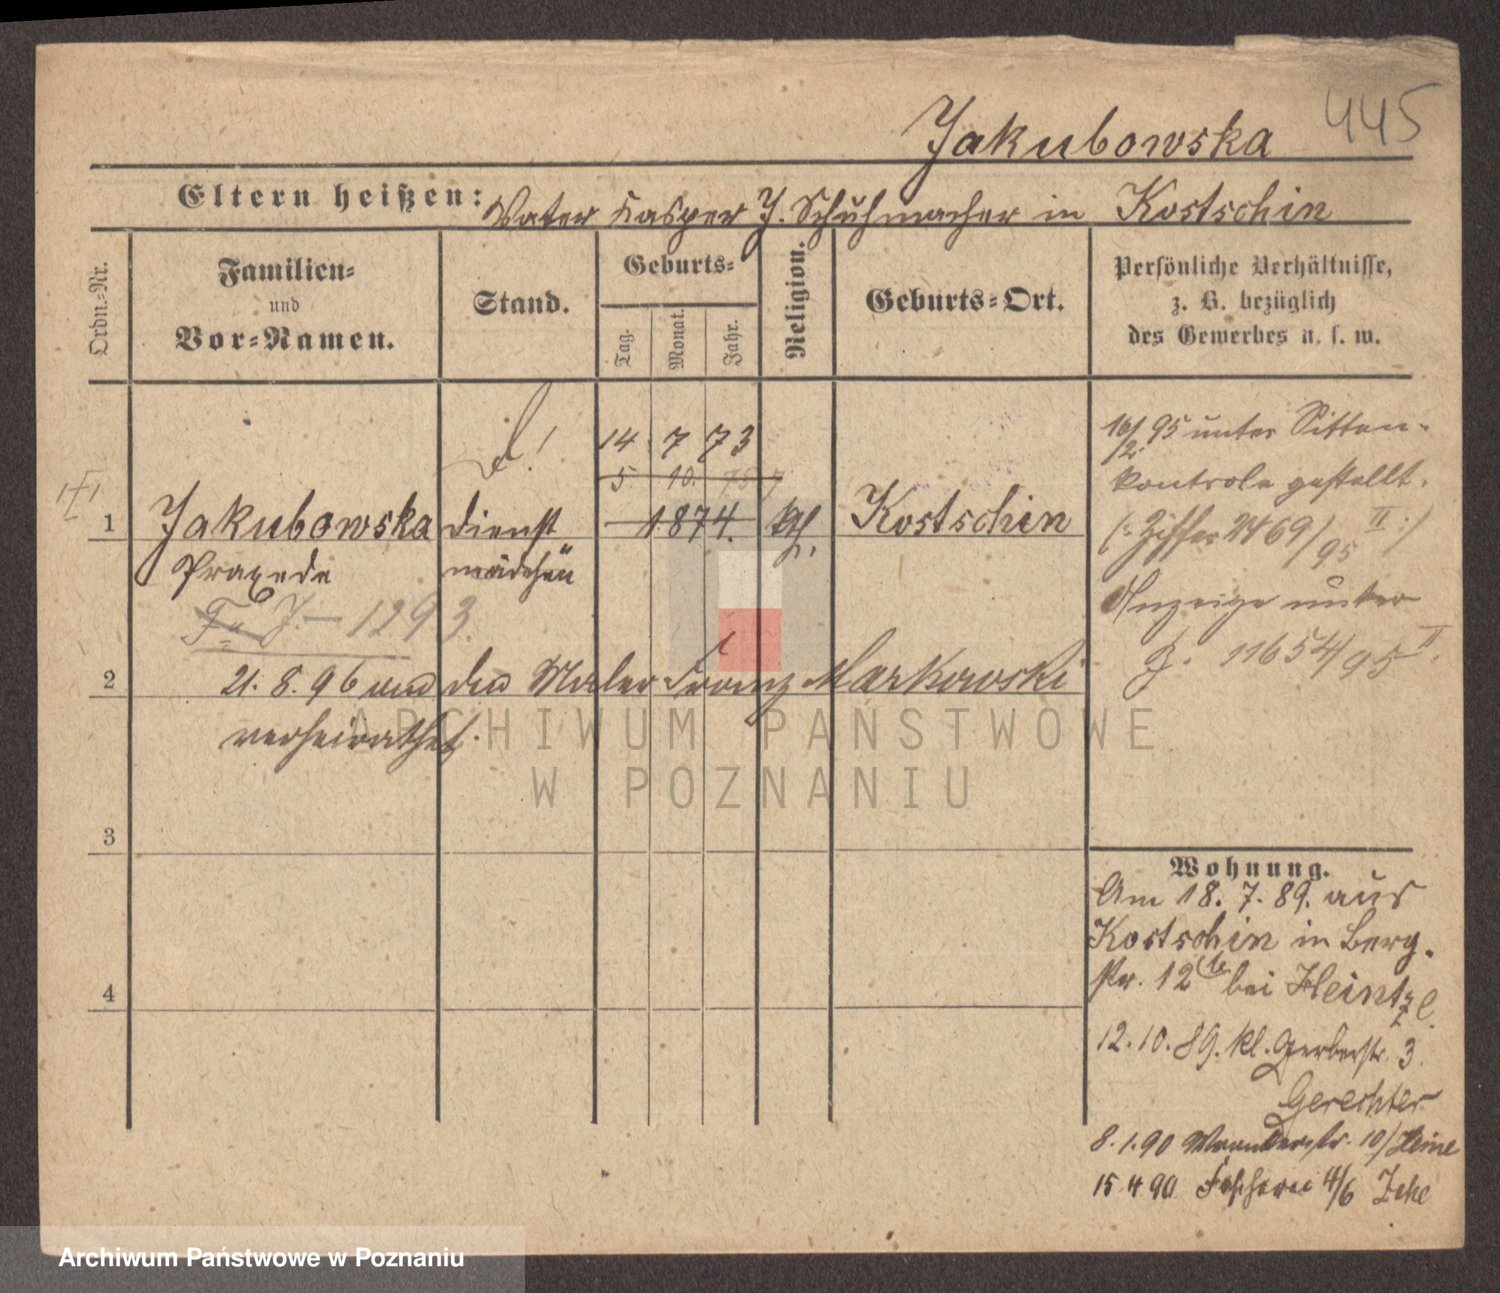 445
Jakubowska
Eltern heißen: Vater Kasper J. Schuhmacher in Kostschin
Ordn.-Nr.
Familien-
und
Vor-Namen.
Stand.
Geburts-
Tag.
Monat.
Jahr.
Religion.
Geburts-Ort.
Persönliche Verhältnisse,
z. B. bezüglich
des Gewerbes u. s. w.
14 7 73
5 10.
1 Jakubowska dienst 1874. kth. Kostschin
Praxede mädchen
J. 1293.
2 21. 8. 96 den Maler Franz Markowski
verheirathet.
3
4
16/2 95 unter Sitten-
kontrole gestellt.
(: Ziffer 2469/95 II :)
Anzeige unter
J. 11654/95 II.
Wohnung.
Am 18. 7. 89. aus
Kostschin in Berg-
str. 12 bei Heintzel.
12. 10. 89. kl. Gerberstr. 3.
Gerechter
8. 1. 90 10/
15 4 90 Fischerei 4/6
ARCHIWUM PAŃSTWOWE
W POZNANIU
Archiwum Państwowe w Poznaniu